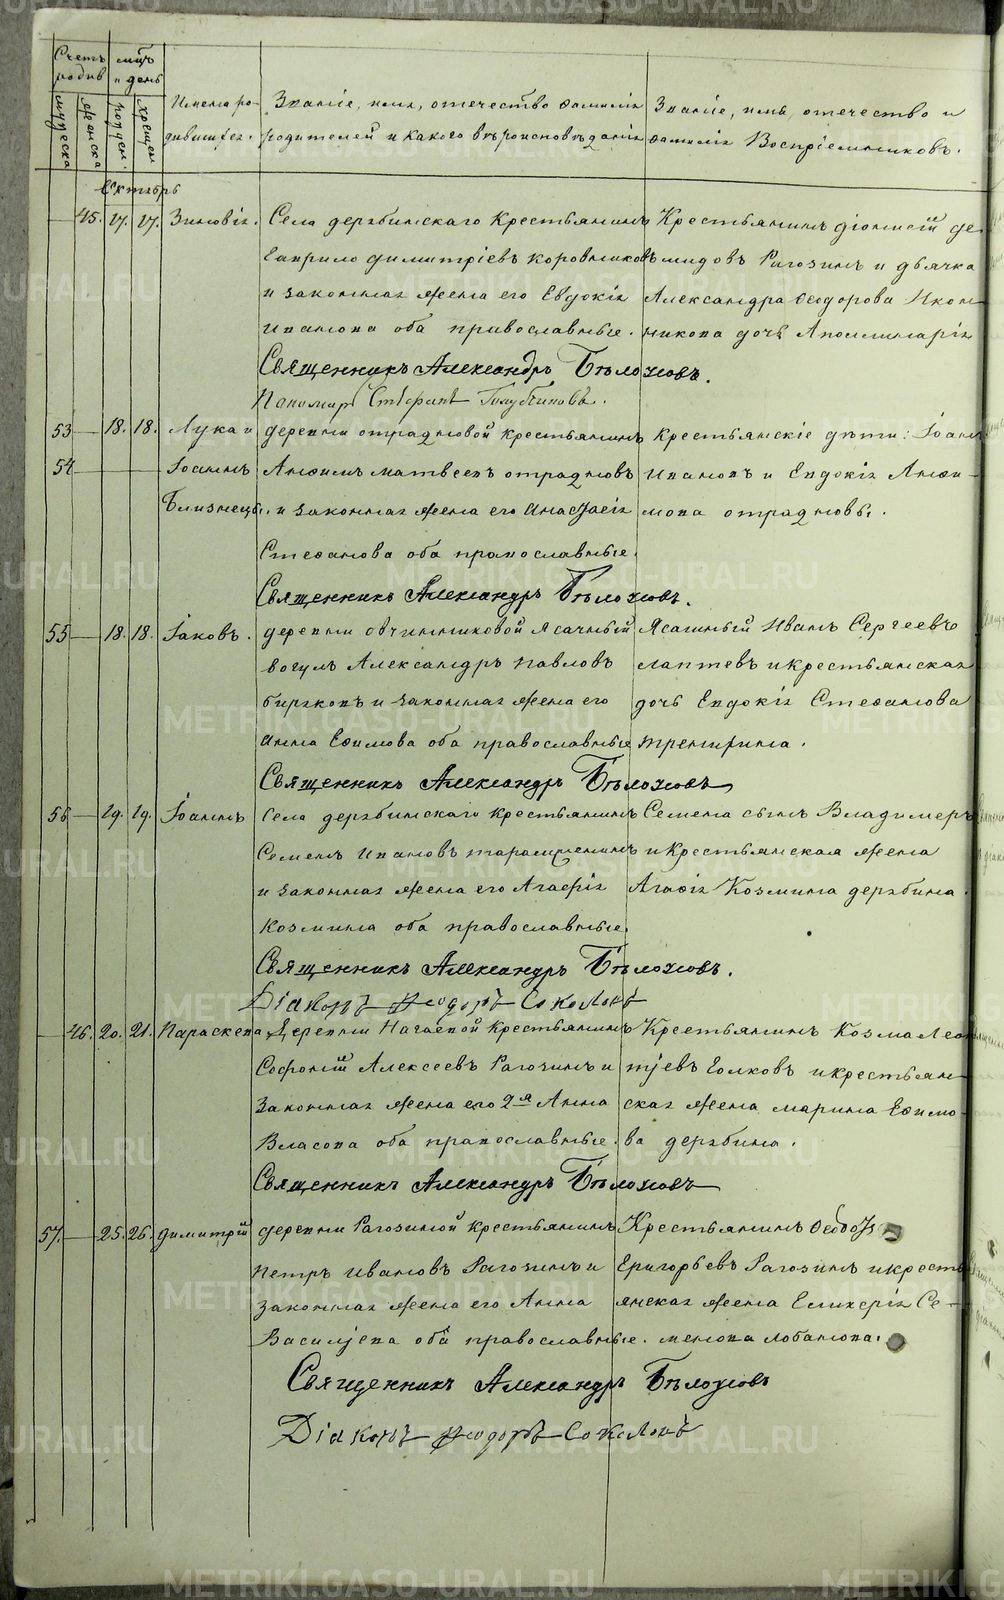 Счетъ родив
мцъ и день
Имена ро-
дившихся.
Званіе, имя, отечество фамилія
родителей и какого вѣроисповѣданія
Званіе, имя, отечество и
фамилія Воспріемниковъ.
мужеска
женска
рожден.
крещен
Октябрь
45. 17. 17. Зиновія.
Села дерябинскаго Крестьянинъ
Гаврило димитріевъ коровниковъ
и законная жена его Евдокія
Иванова оба православные.
Крестьянинъ діонисій де-
мидовъ Рагозинъ и дьячка
Александра Феодорова Икон
никова дочь Аполлинарія
Священникъ Александръ Бѣлоусовъ.
Пономарь Стефанъ Голубчиковъ.
53 18. 18. Лука и
54 Іоаннъ
Близнецы.
деревни отрадновой крестьянинъ
Анфимъ матвеевъ отрадновъ
и законная жена его Анастасія
Стефанова оба православные.
Крестьянскіе дѣти: Іоаннъ
Ивановъ и Евдокія Анфи-
мова отрадновы.
Священникъ Александръ Бѣлоусовъ.
55 18. 18. Іаковъ.
деревни овчинниковой ясачный
вогулъ Александръ павловъ
бирюковъ и законная жена его
Анна Ефимова оба православные
Ясачный Иванъ Сергеевъ
лаптевъ и крестьянская
дочь Евдокія Стефанова
тренихина.
Священникъ Александръ Бѣлоусовъ
56 19. 19. Іоаннъ
Села дерябинскаго крестьянинъ
Семенъ Ивановъ
и законная жена его Агафія
Козмина оба православные.
Семена сынъ Владимеръ
и Крестьянская жена
Агафія Козмина дерябина.
Священникъ Александръ Бѣлоусовъ.
Діаконъ Феодоръ Соколовъ
46. 20. 21. Параскева
Деревни Нагаевой Крестьянинъ
Софоній Алексеевъ Рагозинъ и
законная жена его 2я Анна
Власова оба православные.
Крестьянинъ Козма Леон
тіевъ Волковъ и крестьян-
ская жена марина Ефимо-
ва дерябина.
Священникъ Александръ Бѣлоусовъ
57. 25. 26. димитрій
деревни Рагозиной крестьянинъ
Петръ Ивановъ Рагозинъ и
законная жена его Анна
Василіева оба православные.
Крестьянинъ
Григорьевъ Рагозинъ и крестъ
янская жена Гликерія Се-
менова лобанова.
Священникъ Александръ Бѣлоусовъ
Діаконъ Феодоръ Соколовъ
METRIKI.GASO-URAL.RU